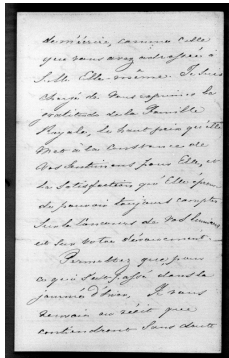 de m'écrire, comme celle
que vous avez adressée à
S. M. Elle-même. Je suis
chargé de vous exprimer la
gratitude de la Famille
Royale, le haut prix qu'elle
met à la constance de
vos sentimens pour Elle, et
la satisfaction qu'Elle éprouve
de pouvoir toujours compter
sur le secours de vos lumières
et sur votre dévouement.
Permettez que, pour
ce qui s'est passé dans la
journée d'hier, Je vous
renvoie au récit que
contiendront sans doute